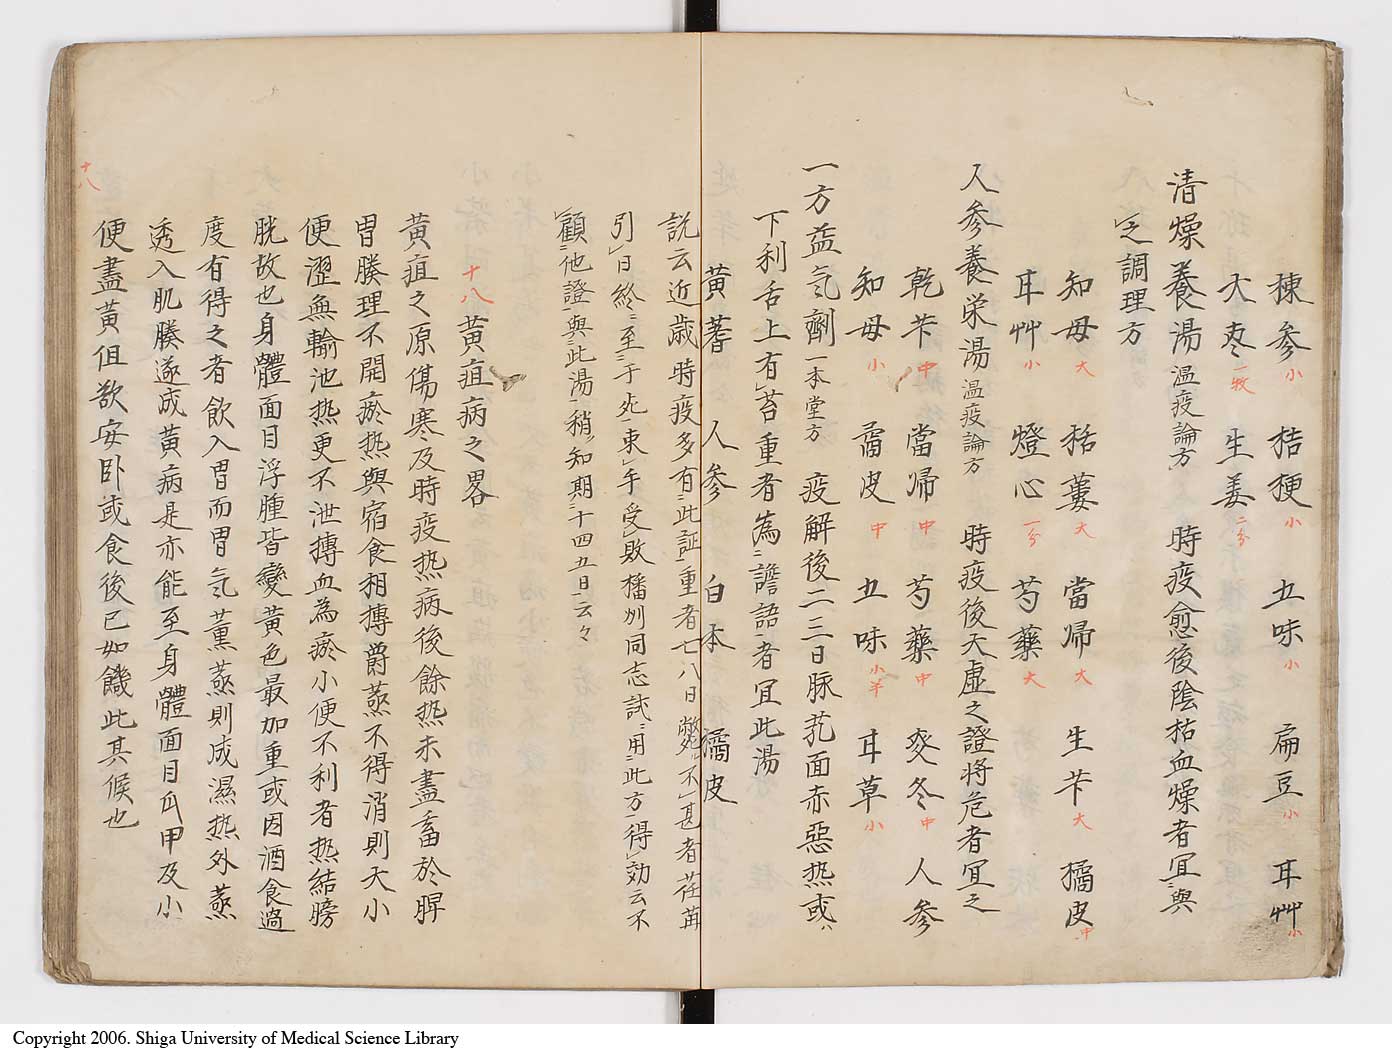 棟參小 桔梗小 五味小 扁豆小 耳艸小
大枣一枚 生姜二分
清燥養湯温疫論方 時疫愈後陰枯血燥者宜ニ與
乄之調理方
知母大 栝蔞大 當帰大 生芐大 橘皮中
耳艸小 燈心一分 芍薬大
人参養栄湯温疫論方 時疫後大虚之證将危者宜之
乾芐中 當帰中 芍薬中 麥冬中 人参
知母小 橘皮中 五味小半 耳草小
一方益気劑一本堂方 疫解後二三日脉芤面赤惡热或ハ
下利舌上有苔重者為ニ譫語一者宜此湯
黄蓍 人参 白朮 橘皮
説云近歳時疫多有ニ此証一重者七八日斃死不甚者荏苒
引日終ニ至ニ于死一束手受敗播州同志試ニ用ニ此方一得効云不
顧ニ他證一與ニ此湯一稍知期ニ十四五日一云々
十八黄疸病之畧
黄疸之原傷寒及時疫热病後餘热未盡畜於脾
胃腠理不開瘀热與宿食相摶爵蒸不得消則大小
便澀無輸池热更不泄摶血為瘀小便不利者热結膀
胱故也身體面目浮腫皆變黄色最加重或因酒食過
度有得之者飲入胃而胃気薫蒸則成濕热外蒸
透入肌腠遂成黄病是亦能至身體面目爪甲及小
便盡黄但欲安卧或食後已如饑此其候也
十八
Copyright 2006. Shiga University of Medical Science Library